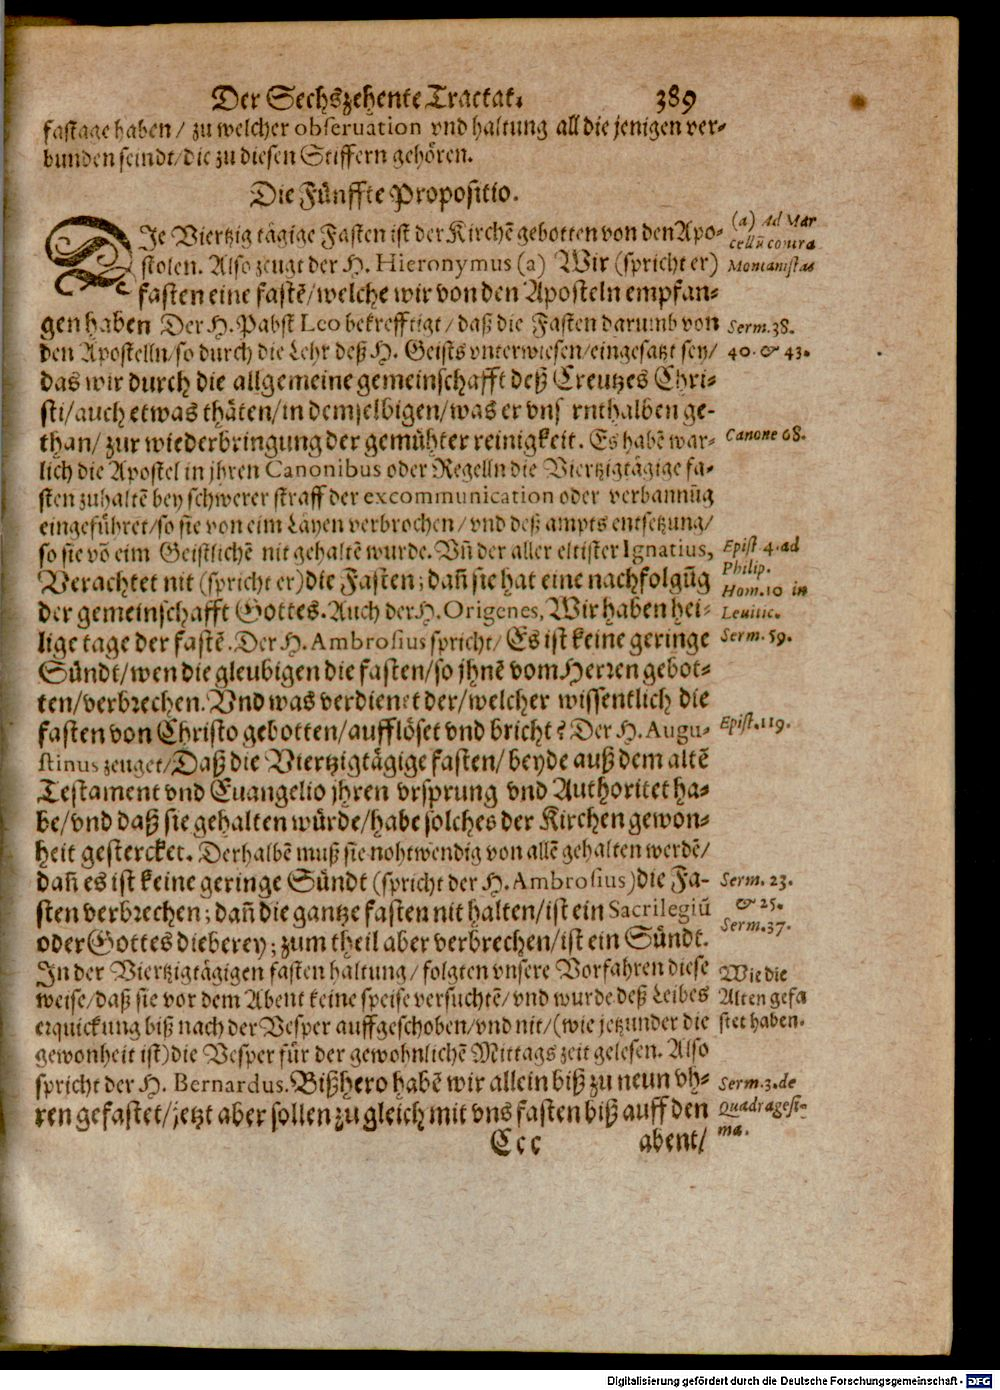 Der Sechszehente Tractat. 389
fastage haben / zu welcher obseruation vnd haltung all die jenigen ver-
bunden seindt/die zu diesen Stifftern gehören.
Die Fünffte Propositio.
DIe Viertzig tägige Fasten ist der Kirchẽ gebotten von den Apo-
stolen. Also zeugt der H. Hieronymus (a) Wir (spricht er)
fasten eine fastẽ/welche wir von den Aposteln empfan-
gen haben Der H. Pabst Leo bekrefftigt / daß die Fasten darumb von
den Apostelln/so durch die Lehr deß H. Geists vnterwiesen/eingesatzt sey/
das wir durch die allgemeine gemeinschafft deß Creutzes Chri-
sti/auch etwas thäten/in demselbigen/was er vns
than/ zur wiederbringung der gemühter reinigkeit. Es habẽ war-
lich die Apostel in jhren Canonibus oder Regelln die Viertzigtägige fa-
sten zuhaltẽ bey schwerer straff der excommunication oder verbannũg
eingeführet/so sie von eim Layen verbrochen / vnd deß ampts entsetzung/
so sie võ eim Geistlichẽ nit gehaltẽ wurde. Vñ der aller eltister Ignatius,
Verachtet nit (spricht er) die Fasten; dañ sie hat eine nachfolgũg
der gemeinschafft Gottes. Auch der H. Origenes, Wir haben hei-
lige tage der fastẽ. Der H. Ambrosius spricht/ Es ist keine geringe
Sündt/wen die gleubigen die fasten/so jhnẽ vom Herren gebot-
ten/verbrechen. Vnd was verdienet der/welcher wissentlich die
fasten von Christo gebotten/aufflöset vnd bricht? Der H. Augu-
stinus zeuget/Daß die Viertzigtägige fasten/ beyde auß dem altẽ
Testament vnd Euangelio jhren vrsprung vnd Authoritet ha-
be/vnd daß sie gehalten würde/habe solches der Kirchen gewon-
heit gestercket. Derhalbẽ muß sie nohtwendig von allẽ gehalten werdẽ/
dañ es ist keine geringe Sündt (spricht der H. Ambrosius) die Fa-
sten verbrechen; dañ die gantze fasten nit halten/ist ein Sacrilegiũ
oder Gottes dieberey; zum theil aber verbrechen/ist ein Sündt.
In der Viertzigtägigen fasten haltung / folgten vnsere Vorfahren diese
weise/daß sie vor dem Abent keine speise versuchtẽ/vnd wurde deß Leibes
erquickung biß nach der Vesper auffgeschoben/vnd nit/(wie jetzunder die
gewonheit ist) die Vesper für der gewohnlichẽ Mittags zeit gelesen. Also
spricht der H. Bernardus. Bißhero habẽ wir allein biß zu neun vh-
ren gefastet/jetzt aber sollen zu gleich mit vns fasten biß auff den
Ccc abent/
(a) Ad Mar
cellũ contra
Montanistas
Serm. 38.
40. & 43.
Canone 68.
Epist. 4. ad
Philip.
Hom. 10 in
Leuitic.
Serm. 59.
Epist. 119.
Serm. 23.
& 25.
Serm. 37.
Wie die
Alten gefa
stet haben.
Serm. 3. de
Quadragesi-
ma.
Digitalisierung gefördert durch die Deutsche Forschungsgemeinschaft - DFG